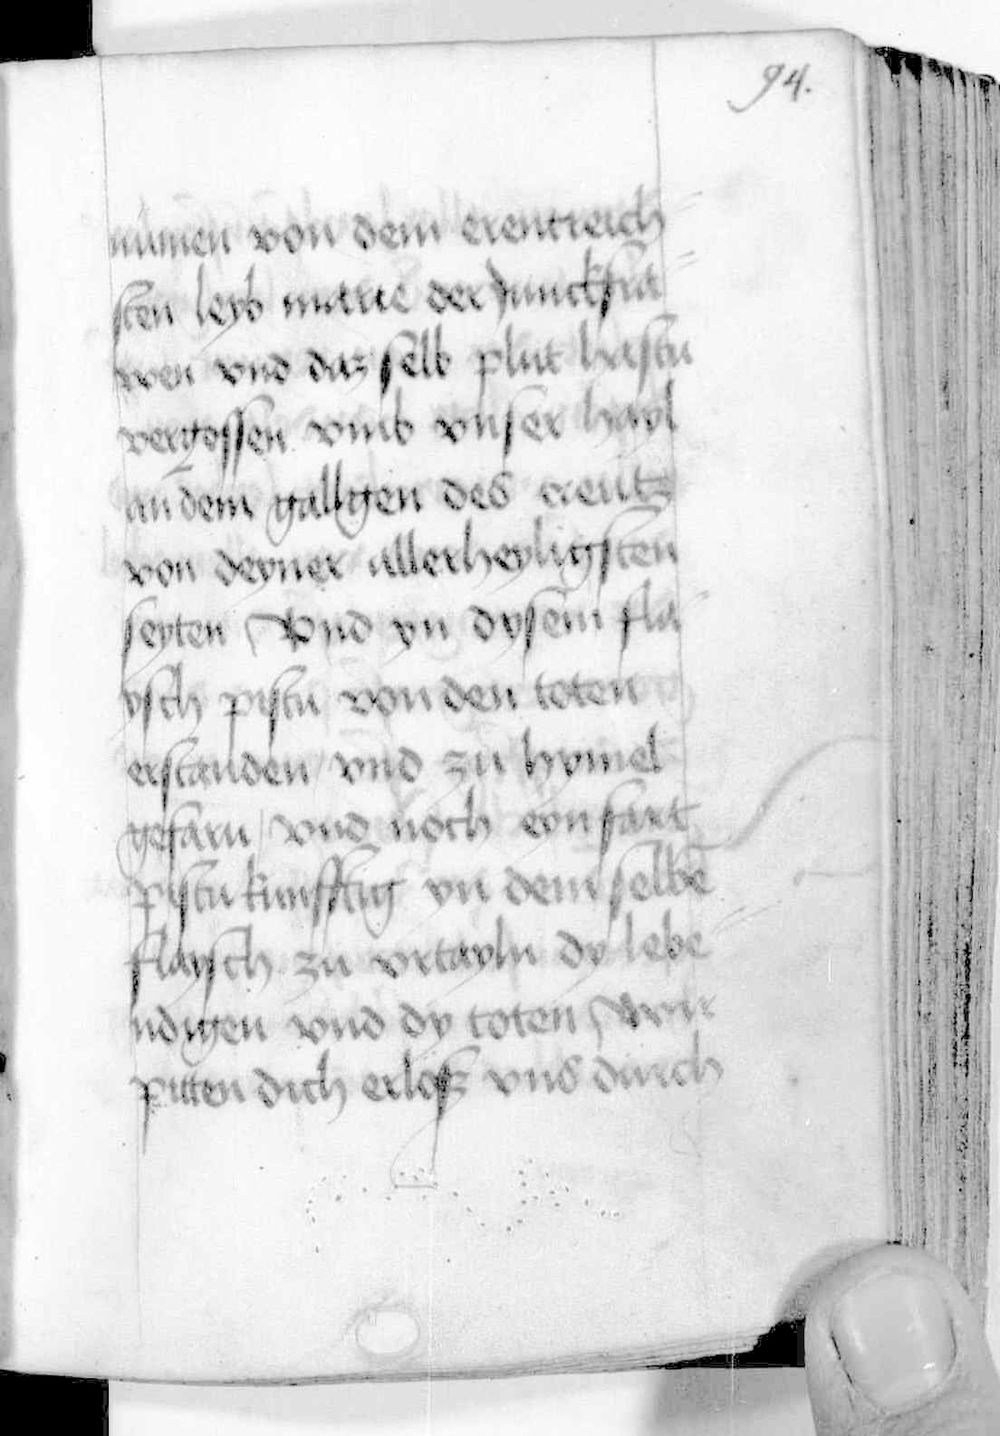 94.
numen von dem erentreich
sten leyb marie der Junckfra
wen vnd daz selb plut hastu
vergossen vmb vnser hayl
an dem gallgen des creutz
von deyner allerheyligsten
seyten Vnd yn dysem fla
ysch pistu von den toten
erstanden vnd zu hymel
gefarn vnd noch eyn fart
pistu kunfftig yn dem selbē
flaysch zu vrtayln dy lebe
ndigen vnd dy toten Wir
pitten dich erlosz vns durch